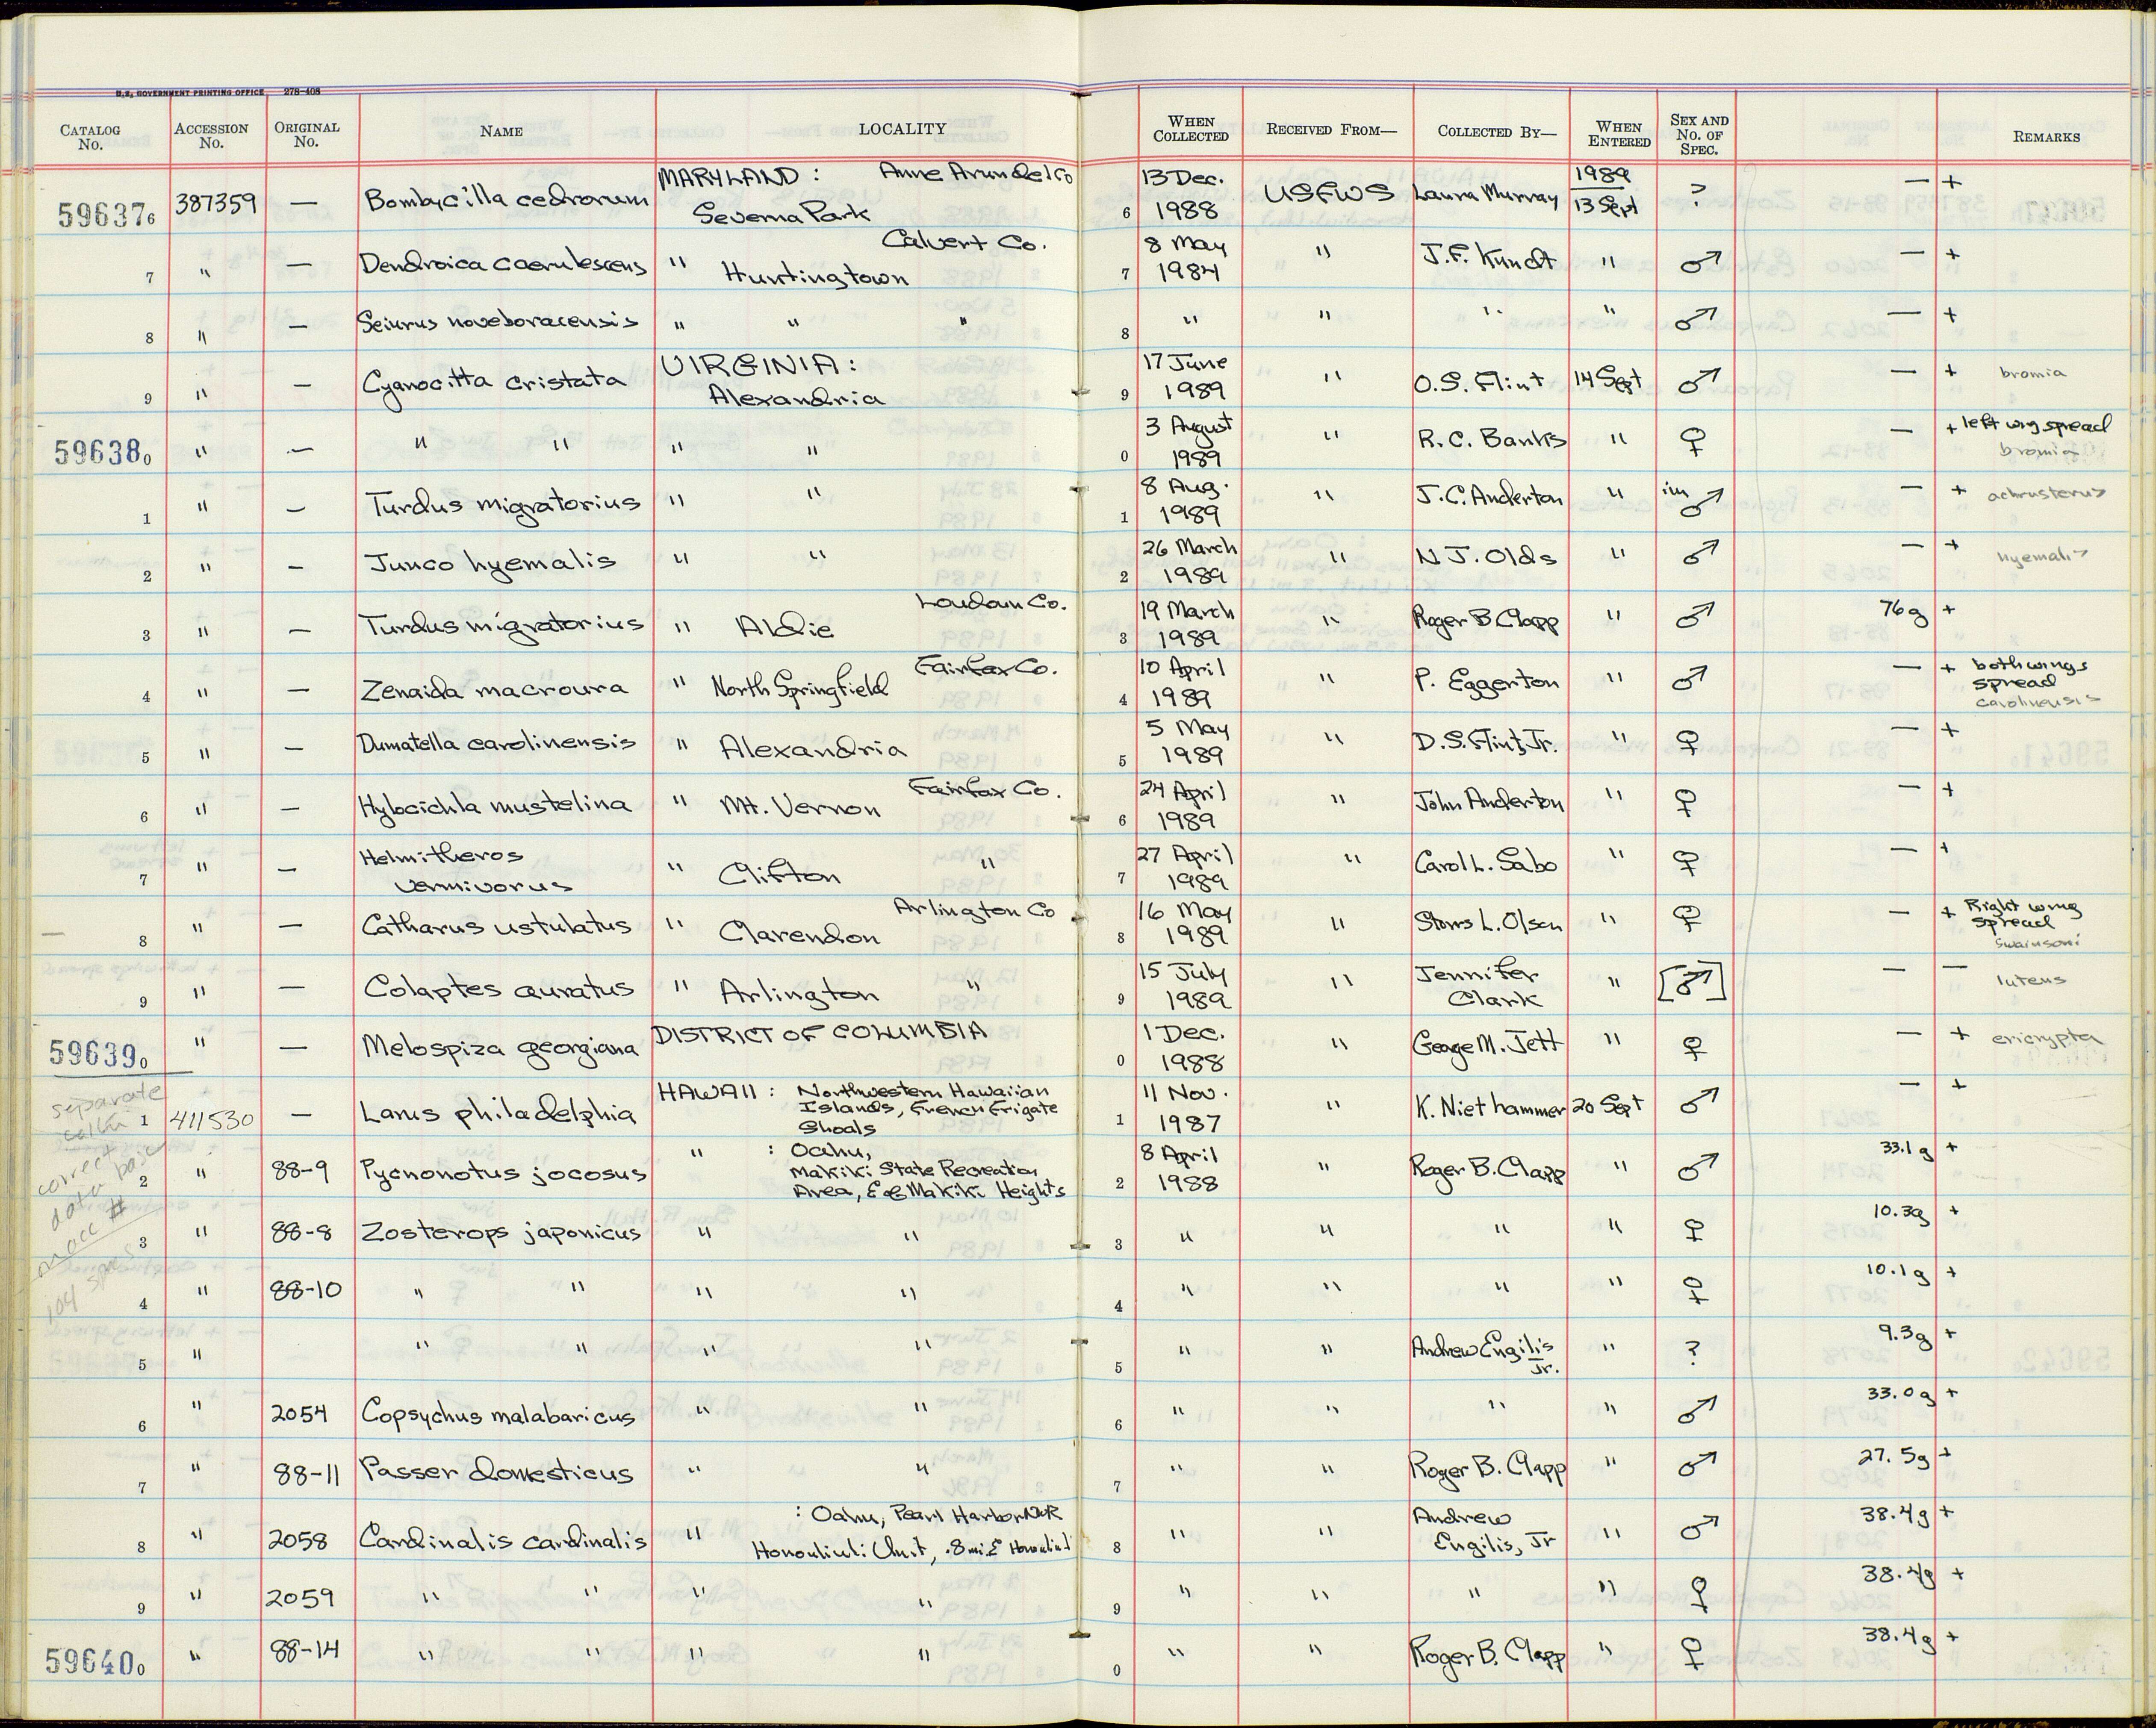 U.S. GOVERNMENT PRINTING OFFICE 278-408
CATALOG No. ACCESSION No. ORIGINAL No. NAME LOCALITY WHEN COLLECTED RECEIVED FROM— COLLECTED BY— WHEN ENTERED SEX AND No. OF SPEC. REMARKS
596376 387359 — Bombycilla cedrorum MARYLAND : Anne Arundel Co Severna Park 6 13 Dec. 1988 USFWS Laura Murray 1989 13 Sept ? — +
7 " — Dendroica caerulescens " Calvert Co. Huntingtown 7 8 May 1984 " J.F. Kundt " ♂ — +
8 " — Seiurus noveboracensis " " " 8 " " " " ♂ — +
9 " — Cyanocitta cristata VIRGINIA : Alexandria 9 17 June 1989 " O.S. Flint 14 Sept ♂ — + bromia
596380 " — " " " " 0 3 August 1989 " R.C. Banks " ♀ — + left wng spread bromia
1 " — Turdus migratorius " " 1 8 Aug. 1989 " J.C. Anderton " im ♂ — + achrusterus
2 " — Junco hyemalis " " 2 26 March 1989 " N J. Olds " ♂ — + hyemalis
3 " — Turdus migratorius " Loudoun Co. Aldie 3 19 March 1989 " Roger B Clapp " ♂ 76g +
4 " — Zenaida macroura " Fairfax Co. North Springfield 4 10 April 1989 " P. Eggerton " ♂ — + both wings spread carolinensis
5 " — Dumatella carolinensis " Alexandria 5 5 May 1989 " D.S. Flint, Jr. " ♀ — +
6 " — Hylocichla mustelina " Fairfax Co. Mt. Vernon 6 24 April 1989 " John Anderton " ♀ — +
7 " — Helmitheros vermivorus " Clifton " 7 27 April 1989 " Carol L. Sabo " ♀ — +
— 8 " — Catharus ustulatus " Arlington Co Clarendon 8 16 May 1989 " Storrs L. Olson " ♀ — + Right wing spread swainsoni
9 " — Colaptes auratus " Arlington " 9 15 July 1989 " Jennifer Clark " [♂] — — luteus
596390 " — Melospiza georgiana DISTRICT OF COLUMBIA 0 1 Dec. 1988 " George M. Jett " ♀ — + ericrypta
separate
1 411530 — Larus philadelphia HAWAII : Northwestern Hawaiian Islands, French Frigate Shoals 1 11 Nov. 1987 " K. Niethammer 20 Sept ♂ — +
correct data base
2 " 88-9 Pycnonotus jocosus " : Oahu, Makiki State Recreation Area, E of Makiki Heights 2 8 April 1988 " Roger B. Clapp " ♂ 33.1 g +
acc #
3 " 88-8 Zosterops japonicus " " 3 " " " " ♀ 10.3g +
104 spms
4 " 88-10 " " " " 4 " " " " ♀ 10.1g +
5 " " " " " 5 " " Andrew Engilis Jr. " ? 9.3g +
6 " 2054 Copsychus malabaricus " " 6 " " " " ♂ 33.0g +
7 " 88-11 Passer domesticus " " 7 " " Roger B. Clapp " ♂ 27.5g +
8 " 2058 Cardinalis cardinalis " : Oahu, Pearl Harbor NWR Honouliuli Unit, .8 mi E Honouliuli 8 " " Andrew Engilis, Jr " ♂ 38.4g +
9 " 2059 " " " " 9 " " " " ♀ 38.4g +
596400 " 88-14 " " " " 0 " " Roger B. Clapp " ♀ 38.4g +